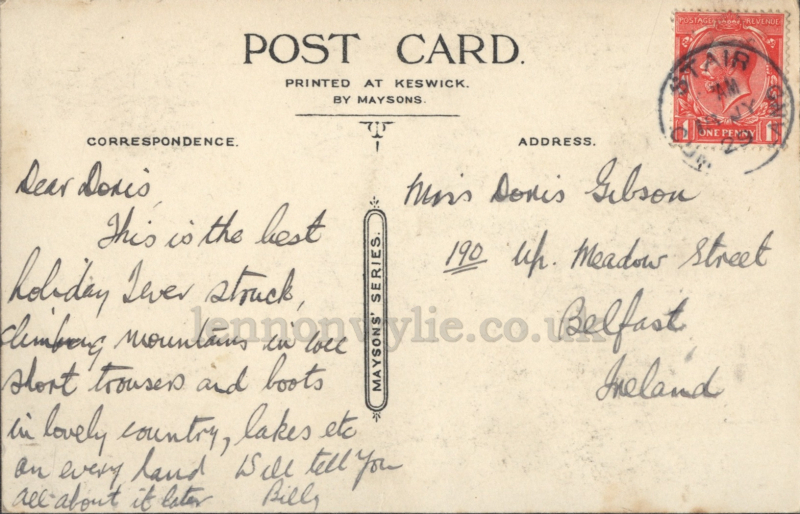 POST CARD.
PRINTED AT KESWICK.
BY MAYSONS.
CORRESPONDENCE.
ADDRESS.
POSTAGE REVENUE
ONE PENNY
STAIR
AM
MY
29
MAYSONS' SERIES.
Dear Doris,
This is the best
holiday I ever struck,
climbing mountains in wee
short trousers and boots
in lovely country, lakes etc
on every hand Will tell you
all about it later Billy
Miss Doris Gibson
190 Up. Meadow Street
Belfast
Ireland
lennonwylie.co.uk